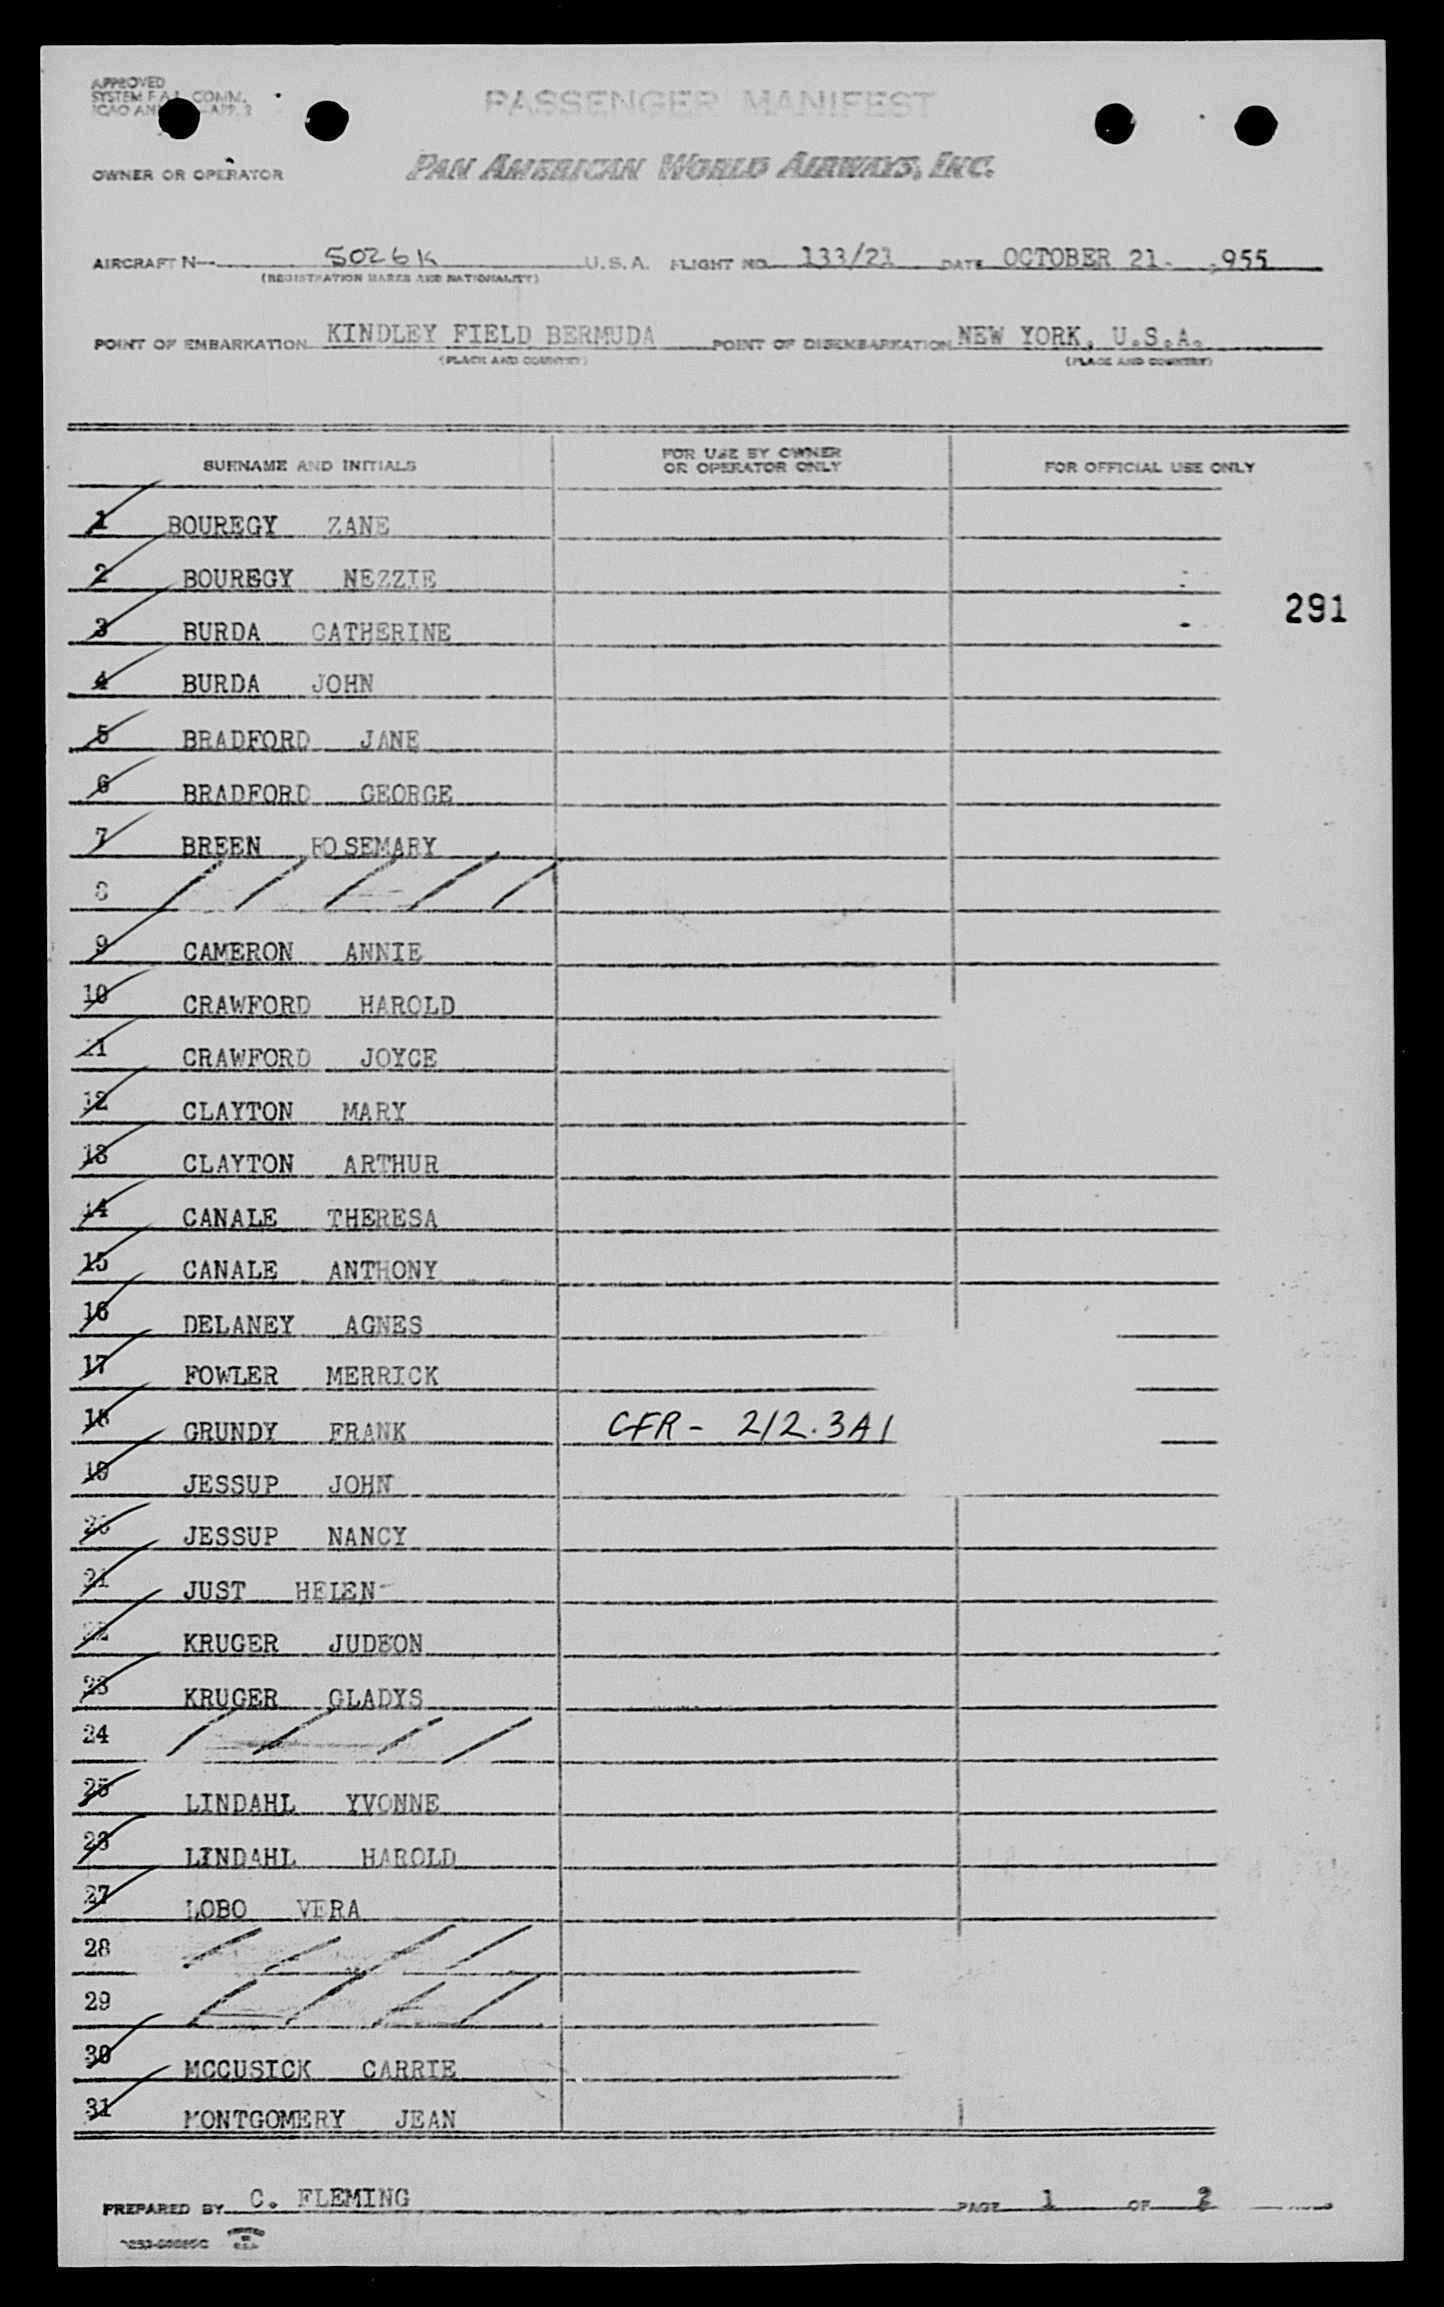 APPROVED
SYSTEM F.A.L. COMM.
ICAO —APP. 2
PASSENGER MANIFEST
OWNER OR OPERATOR PAN AMERICAN WORLD AIRWAYS, INC.
AIRCRAFT N— 5026K U.S.A. FLIGHT NO. 133/21 DATE OCTOBER 21 955
(REGISTRATION MARKS AND NATIONALITY)
POINT OF EMBARKATION KINDLEY FIELD BERMUDA POINT OF DISEMBARKATION NEW YORK, U.S.A.
(PLACE AND COUNTRY) (PLACE AND COUNTRY)
SURNAME AND INITIALS FOR USE BY OWNER OR OPERATOR ONLY FOR OFFICIAL USE ONLY
1 BOUREGY ZANE
2 BOUREGY NEZZIE
291
3 BURDA CATHERINE
4 BURDA JOHN
5 BRADFORD JANE
6 BRADFORD GEORGE
7 BREEN ROSEMARY
8 / / / / /
9 CAMERON ANNIE
10 CRAWFORD HAROLD
11 CRAWFORD JOYCE
12 CLAYTON MARY
13 CLAYTON ARTHUR
14 CANALE THERESA
15 CANALE ANTHONY
16 DELANEY AGNES
17 FOWLER MERRICK
18 GRUNDY FRANK CFR - 212.3A1
19 JESSUP JOHN
20 JESSUP NANCY
21 JUST HELEN
22 KRUGER JUDSON
23 KRUGER GLADYS
24 / / / /
25 LINDAHL YVONNE
26 LINDAHL HAROLD
27 LOBO VERA
28 / / / /
29 / / / /
30 MCCUSICK CARRIE
31 MONTGOMERY JEAN
PREPARED BY C. FLEMING PAGE 1 OF 2
PRINTED IN U.S.A.